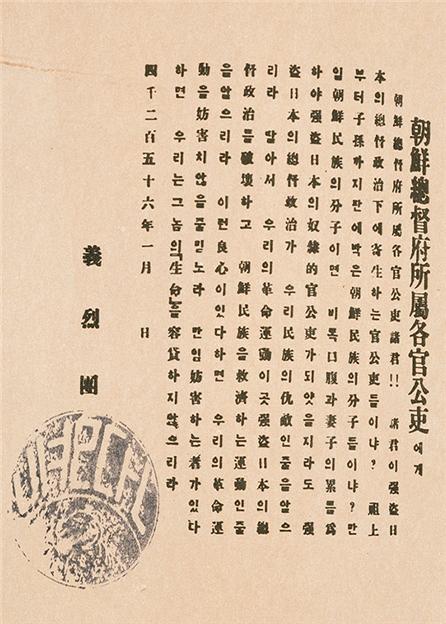 朝鮮總督府所屬各官公吏에게
朝鮮總督府所屬各官公吏諸君!! 諸君이强盜日
本의總督政治下에寄生하는官公吏들이냐? 祖上
부터子孫까지판에박은朝鮮民族의分子들이냐? 만
일朝鮮民族의分子이면 비록口腹과妻子의累를爲
하야强盜日本의奴隷的官公吏가되얏을지라도 强
盜日本의總督政治가 우리民族의仇敵인줄을알으
리라 딸아서 우리의革命運動이곳强盜日本의總
督政治를破壞하고 朝鮮民族을救濟하는運動인줄
을알으리라 이런良心이잇다하면 우리의革命運
動을妨害치않을줄믿노라 만임妨害하는者가잇다
하면 우리는그놈의「生命」을容貸하지않으리라
四千二百五十六年一月 日
義烈團